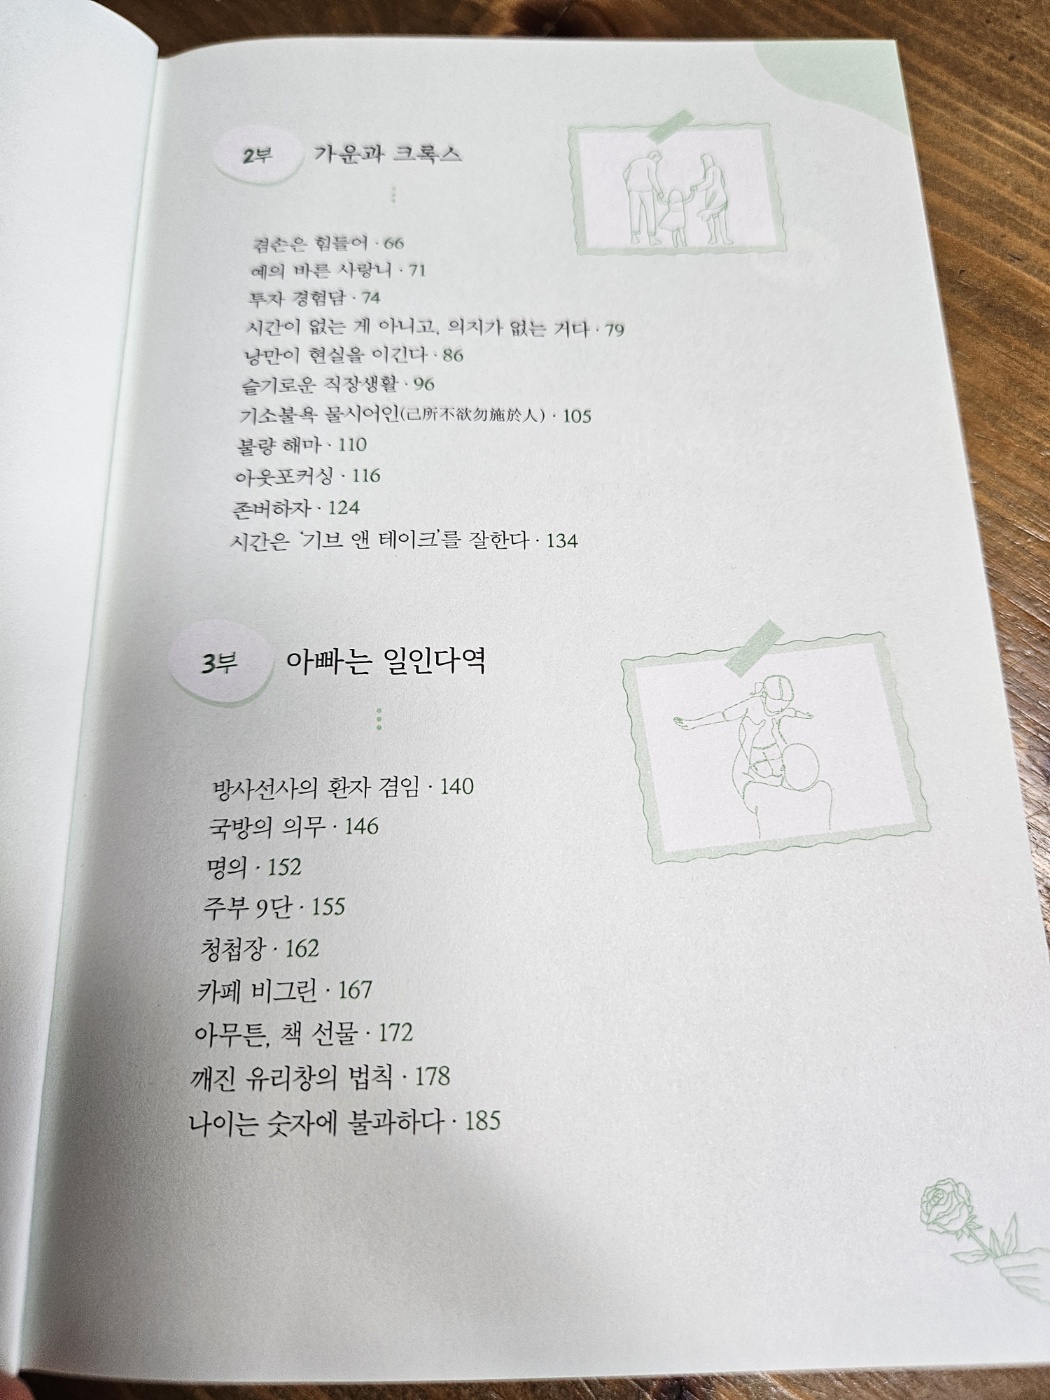 2부 가운과 크록스
겸손은 힘들어 · 66
예의 바른 사랑니 · 71
투자 경험담 · 74
시간이 없는 게 아니고, 의지가 없는 거다 · 79
낭만이 현실을 이긴다 · 86
슬기로운 직장생활 · 96
기소불욕 물시어인(己所不欲勿施於人) · 105
불량 해마 · 110
아웃포커싱 · 116
존버하자 · 124
시간은 '기브 앤 테이크'를 잘한다 · 134
3부 아빠는 일인다역
방사선사의 환자 겸임 · 140
국방의 의무 · 146
명의 · 152
주부 9단 · 155
청첩장 · 162
카페 비그린 · 167
아무튼, 책 선물 · 172
깨진 유리창의 법칙 · 178
나이는 숫자에 불과하다 · 185